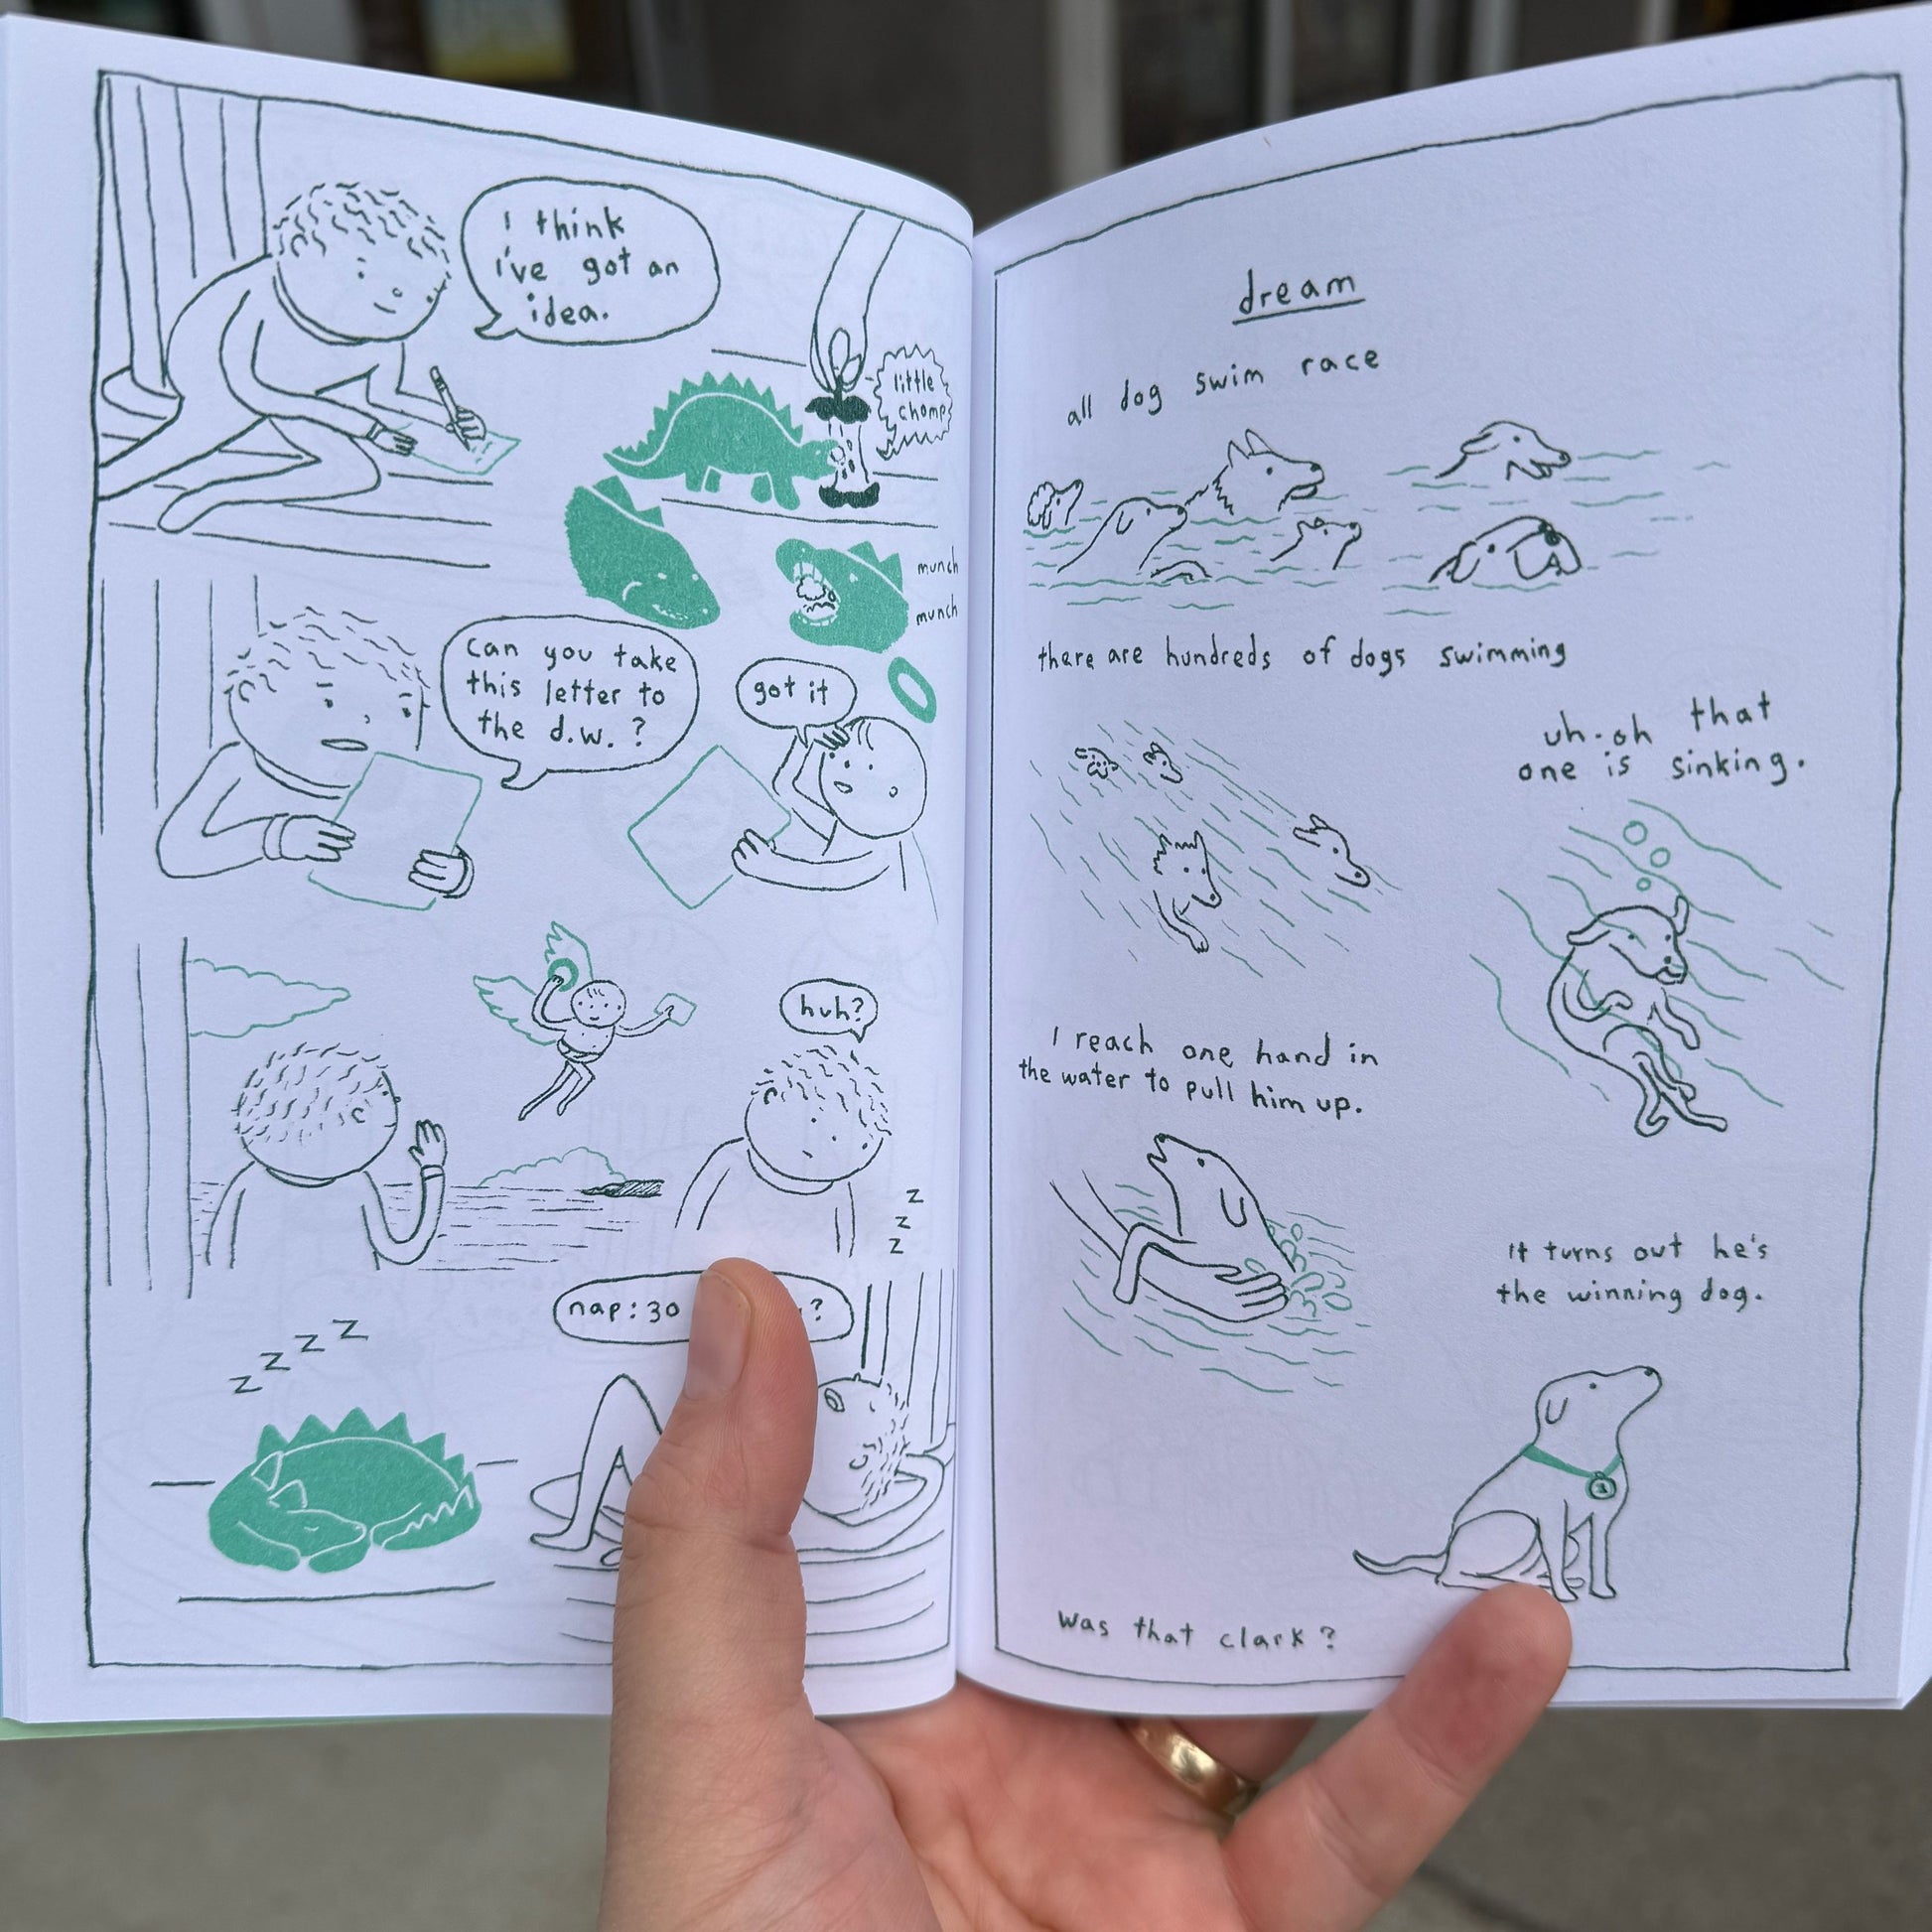 I think
i've got an
idea.
little
chomp
munch
munch
Can you take
this letter to
the d.w.?
got it
huh?
z
z
z
nap:30
?
z z z z
dream
all dog swim race
there are hundreds of dogs swimming
uh-oh that
one is sinking.
I reach one hand in
the water to pull him up.
It turns out he's
the winning dog.
1
Was that clark?